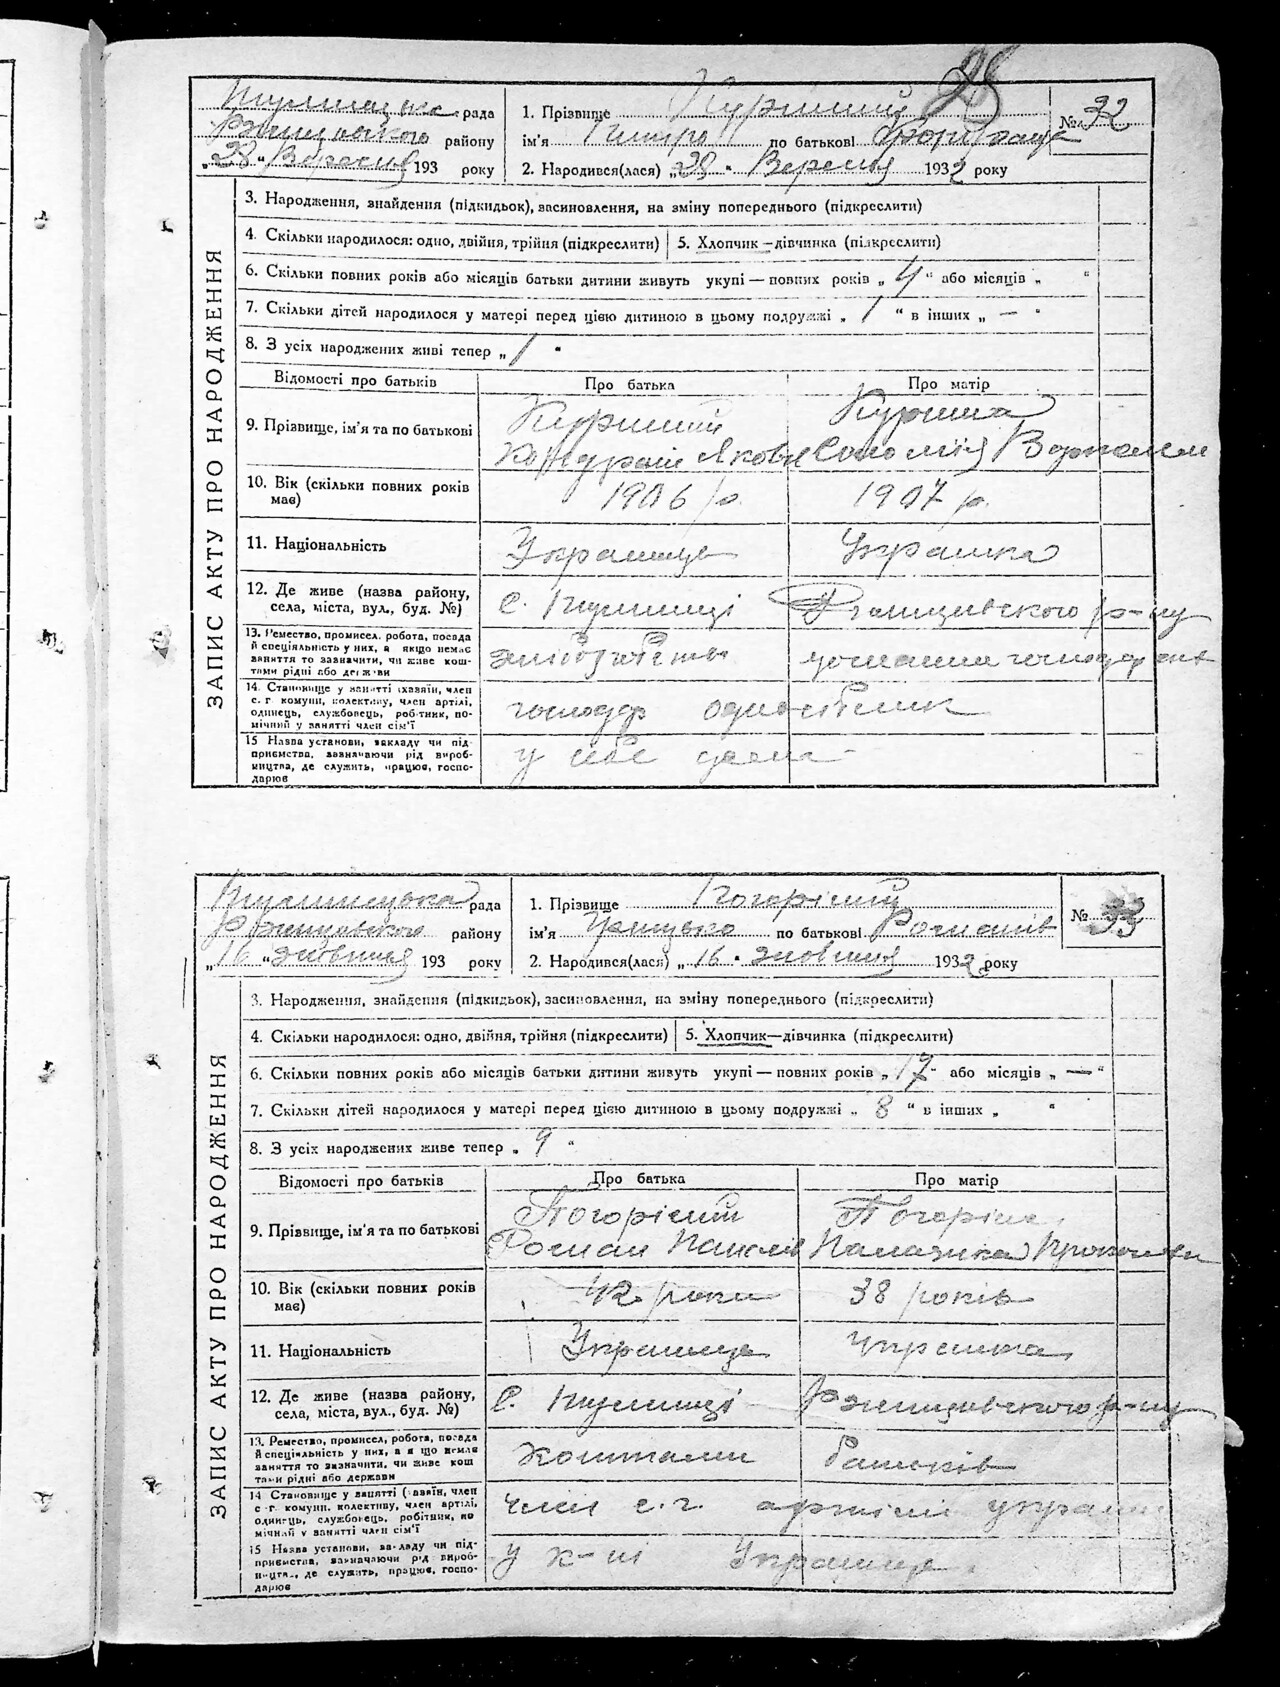 рада
Ржищівського району
„28" Вересня 193 року
1. Прізвище
ім'я Петро по батькові
2. Народився(лася) „28" Вересня 1932 року
№ 32
ЗАПИС АКТУ ПРО НАРОДЖЕННЯ
3. Народження, знайдення (підкидьок), засиновлення, на зміну попереднього (підкреслити)
4. Скільки народилося: одно, двійня, трійня (підкреслити) 5. Хлопчик—дівчинка (підкреслити)
6. Скільки повних років або місяців батьки дитини живуть укупі — повних років „4" або місяців „ "
7. Скільки дітей народилося у матері перед цією дитиною в цьому подружжі „1" в інших „—"
8. З усіх народжених живі тепер „1"
Відомості про батьків Про батька Про матір
9. Прізвище, ім'я та по батькові
Кондрат Яковл Соломія
10. Вік (скільки повних років має) 1906 р. 1907 р.
11. Національність Українець Українка
12. Де живе (назва району, села, міста, вул., буд. №) С. Ржищівського р-ну
13. Ремество, промисел, робота, посада
й спеціяльність у них, а якщо немає
заняття то зазначити, чи живе кош-
тами рідні або держави
14. Становище у занятті (хазяїн, член
с.-г. комуни, колективу, член артілі,
одинець, службовець, робітник, по-
мічний у занятті член сім'ї
господар одноосібник
15 Назва установи, закладу чи під-
приємства, зазначаючи рід вироб-
ництва, де служить, працює, госпо-
дарює
у себе дома
рада
Ржищівського району
„16" жовтня 193 року
1. Прізвище Погорілий
ім'я Грицько по батькові Романів
2. Народився(лася) „16" жовтня 1932 року
№ 33
ЗАПИС АКТУ ПРО НАРОДЖЕННЯ
3. Народження, знайдення (підкидьок), засиновлення, на зміну попереднього (підкреслити)
4. Скільки народилося: одно, двійня, трійня (підкреслити) 5. Хлопчик—дівчинка (підкреслити)
6. Скільки повних років або місяців батьки дитини живуть укупі — повних років „17" або місяців „—"
7. Скільки дітей народилося у матері перед цією дитиною в цьому подружжі „8" в інших „ "
8. З усіх народжених живе тепер „9"
Відомості про батьків Про батька Про матір
9. Прізвище, ім'я та по батькові Погорілий Погоріла
Роман Павлів Палажка Прокопівн
10. Вік (скільки повних років має) 42 роки 38 років
11. Національність Українець Українка
12. Де живе (назва району, села, міста, вул., буд. №) С. Ржищівського р-ну
13. Ремество, промисел, робота, посада
й спеціяльність у них, а якщо немає
заняття то зазначити, чи живе кош-
тами рідні або держави
Коштами батьків
14 Становище у занятті (хазяїн, член
с-г. комуни, колективу, член артілі,
одинець, службовець, робітник, по
мічний у занятті член сім'ї
член с.г. артілі
15 Назва установи, закладу чи під-
приємства, зазначаючи рід вироб-
ництва, де служить, працює, госпо-
дарює